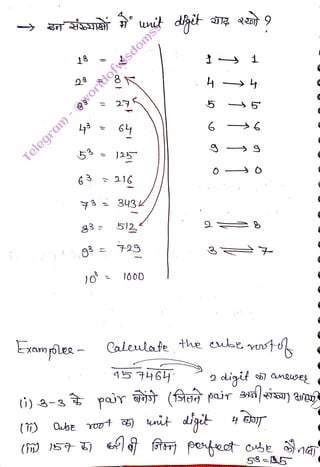 → इन संख्याओं में unit digit याद रखो ?
1³ = 1
2³ = 8
3³ = 27
4³ = 64
5³ = 125
6³ = 216
7³ = 343
8³ = 512
9³ = 729
10³ = 1000
1 → 1
4 → 4
5 → 5
6 → 6
9 → 9
0 → 0
2 ⇌ 8
3 ⇌ 7
Telegram - @worldofwisdomss
Examples - Calculate the cube root of
157464
2 digit का answer
(i) 3-3 के pair बनेंगे (जितने pair उतनी संख्या
(ii) cube root का unit digit 4 होगा
(iii) 157 का करीबी निम्न perfect cube
5³ = 125